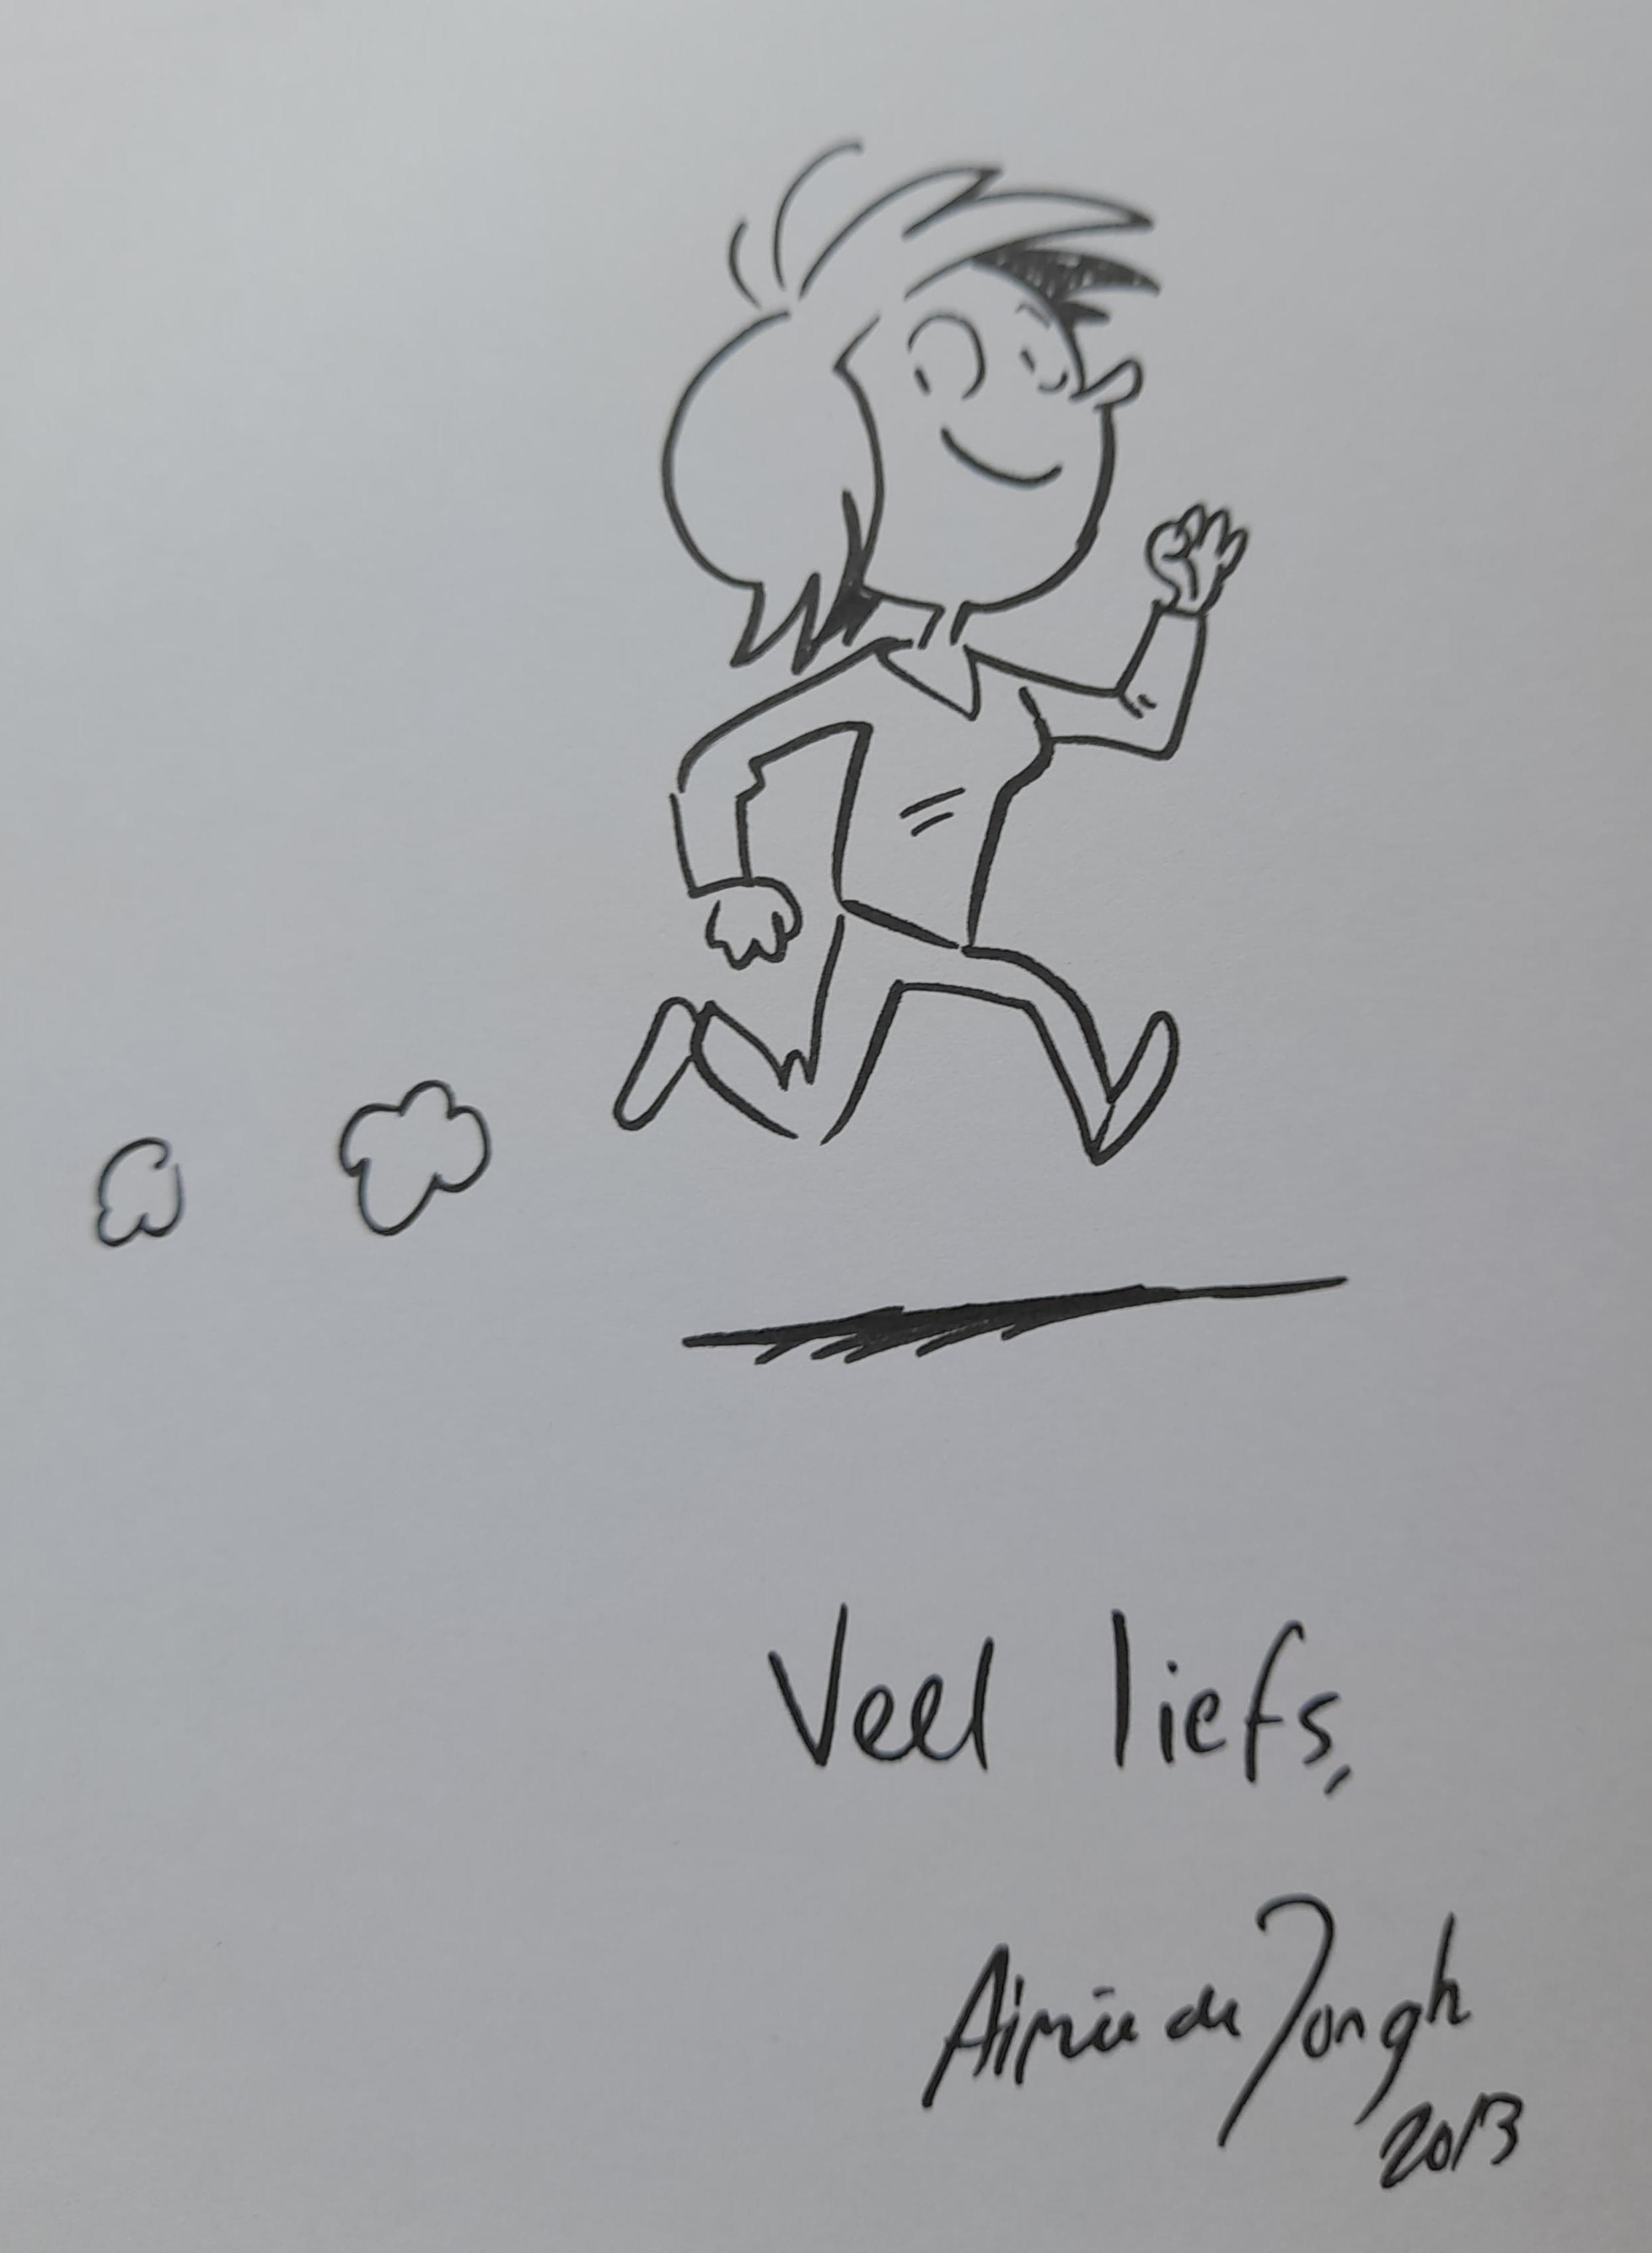 Veel liefs,
Aimée de Jongh
2013